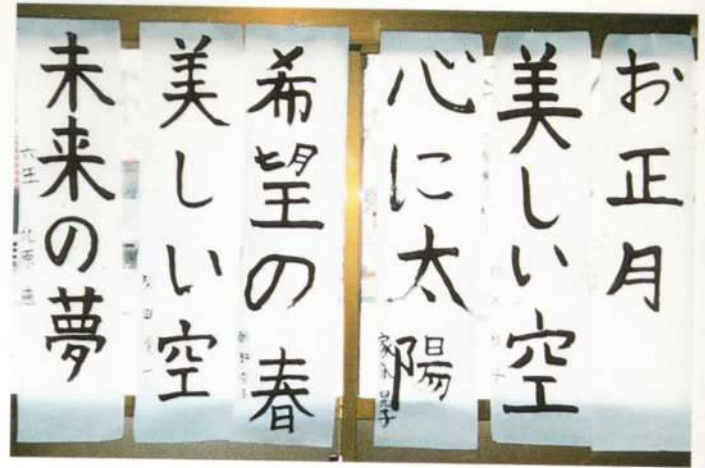 お正月
美しい空
心に太陽
希望の春
美しい空
未来の夢
六年